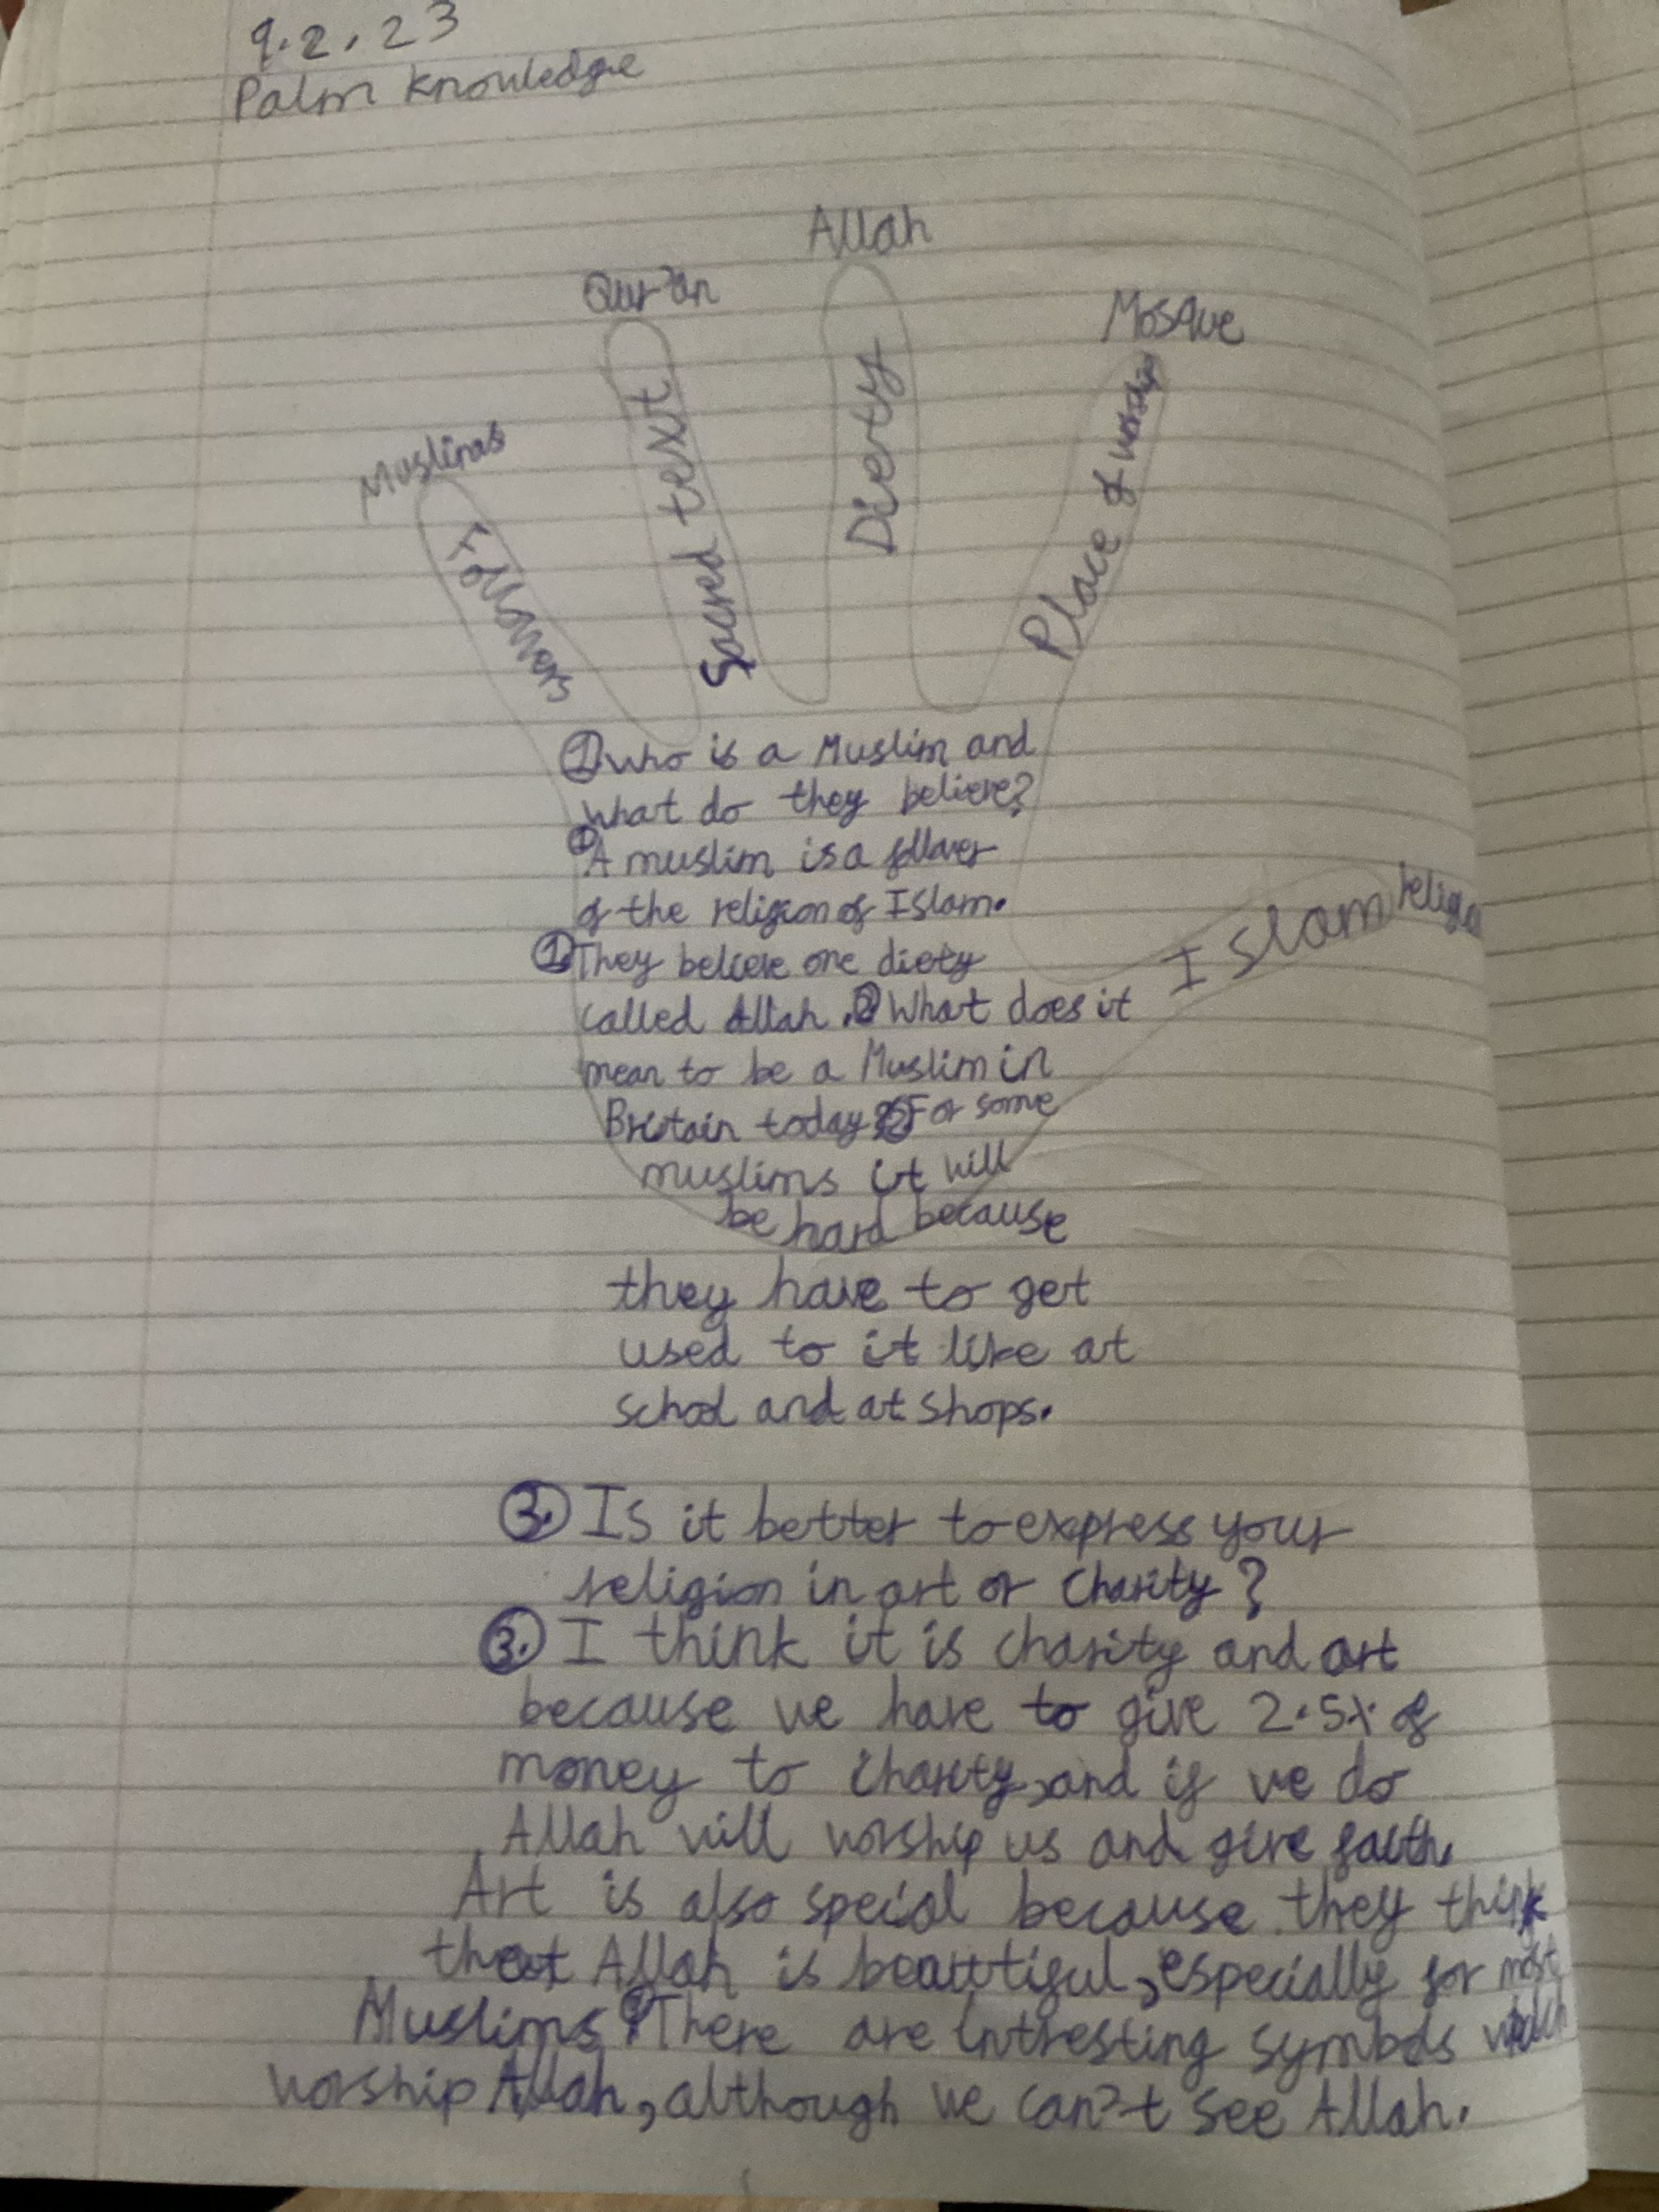 9.2.23
Palm knowledge
Allah
Qur'an
Mosque
Muslims
Followers
Sacred text
Dierty
Place of worship
①who is a Muslim and
what do they believe?
①A muslim is a follower
of the religion of Islam.
①They believe one diety
called Allah.②What does it
mean to be a Muslim in
Britain today②For some
muslims it will
be hard because
they have to get
used to it like at
school and at shops.
Islam religio
③. Is it better to express your
religion in art or charity?
③. I think it is charity and art
because we have to give 2.5% of
money to charity, and if we do
Allah will worship us and give faith.
Art is also special because they think
that Allah is beautiful, especially for most
Muslims There are intresting symbols which
worship Allah, although we can't see Allah.